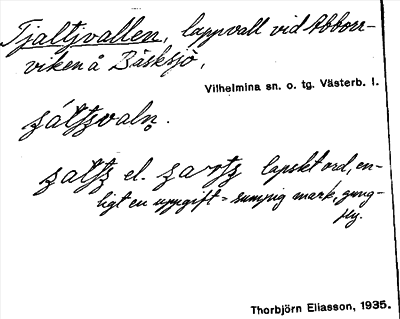 Tjaltjvallen, lappvall vid Abborr-
viken å Bäsksjö,
Vilhelmina sn. o. tg. Västerb. l.
lapskt ord, en-
ligt en uppgift = sumpig mark, gung-
fly.
Thorbjörn Eliasson, 1935.